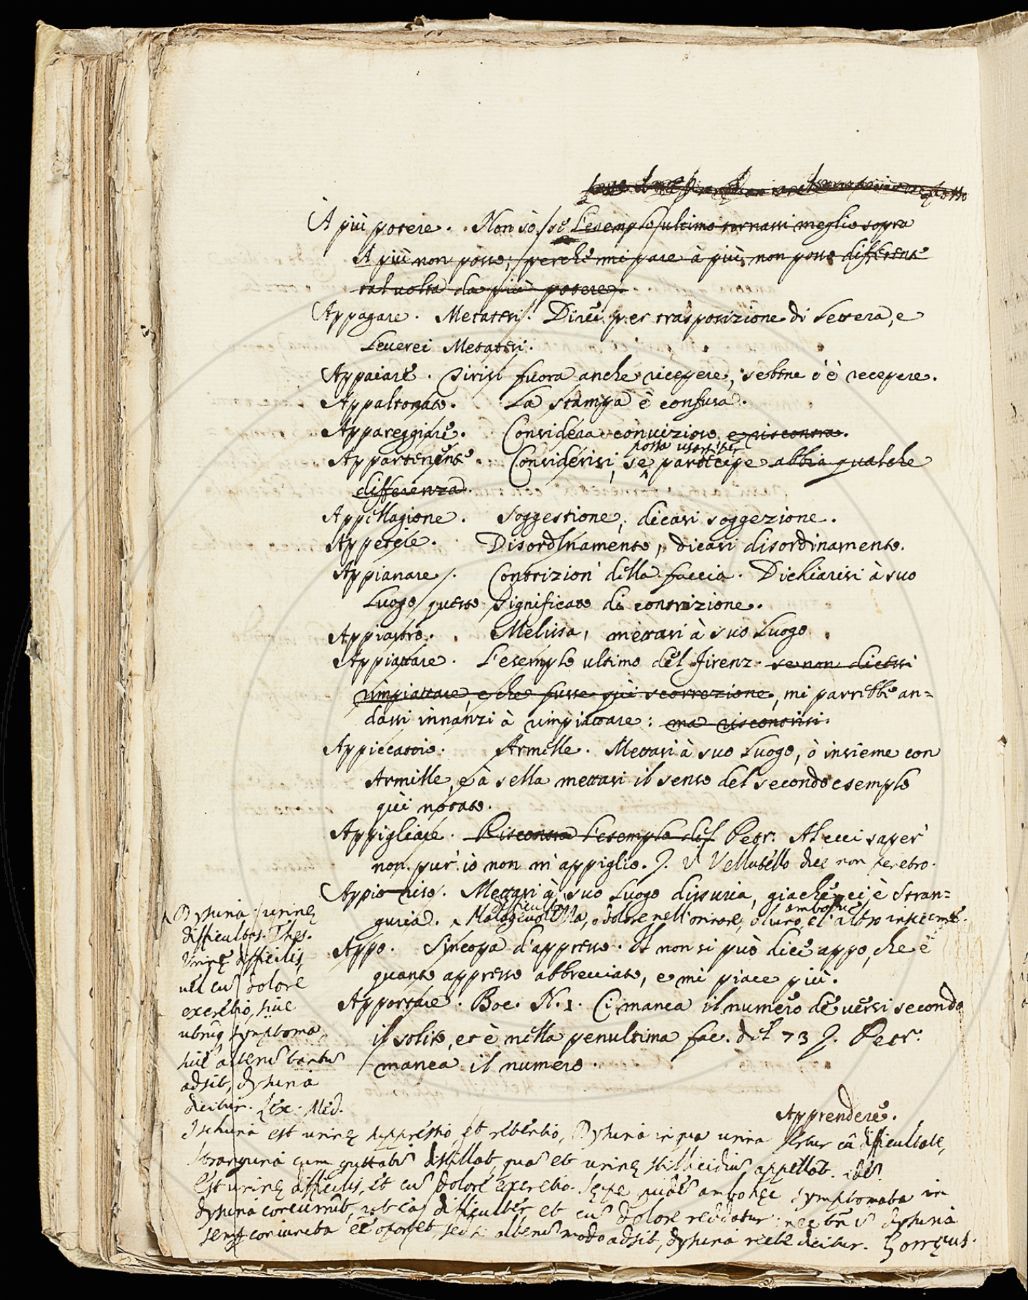 À più potere. Non sò se l'esemplo ultimo tornassi meglio sopra
A più non posso; perche mi pare à più non posso differente
talvolta da più potere.
Appagare. Metatesi. Direi per trasposizione di Lettera, e
Leverei Metatesi.
Appaiare. fuora anche ricepere, sebene c'è recepere.
Appaltonato. La stampa è confusa.
Appareggiare. Considera
Appartenente. Considerisi, se participe abbia qualche
posta usarsi per
differenza.
Appellagione. Soggestione, dicasi soggezione.
Appetere. Disordinamento, dicasi disordinamento.
Appianare. Contrizion della faccia. Dichiarisi à suo
Luogo questo significato di contrizione.
Appiastro. Melissa, mettasi à suo Luogo.
Appiattare. L'esemplo ultimo del Firenz. se non dicessi
rimpiattare, e che fusse qui scorrezione, mi parrebbe an-
dassi innanzi à rimpiattare: ma riscontrisi.
Appiccatoio. Armille. Mettasi à suo Luogo, ò insieme con
Armilla, e à sella mettasi il senso del secondo esemplo
qui notato.
Appigliare. Riscontra l'esemplo del Petr. Al ecci saper
non pur' io non m'appiglio. Il Vellutello dice non
Appio riso. Mettasi à suo Luogo dissuria, giache ci è stran-
guria. difficultà, o dolore nell'orinare,
Appo. Sincopa d'appresso. Il non si può dice appo, che è
quanto appresso abbreviato, e mi piace più.
Apportare. Boc. N. 1. Ci manca il numero de versi secondo
il solito, et è nella penultima fac. del 73 Petr.
manca il numero.
Apprendere.
Dysuria urinę
difficultas. Thes.
Urinę difficilis,
vel cum dolore
excretio, sive
utrumque symptoma
sive alterum tantum
adsit, dysuria
dicitur. Lex. Med.
Ischuria est urinę suppressio, et retentio, Dysuria in qua urina fertur cum difficultate,
stranguria cum guttatim distillat, quae et urinę stillicidium appellat.
est urinę difficilis, et cum dolore excretio. Sępe symptomata in
dysuria concurrunt, difficulter et cum dolore reddatur: dysuria
alterum modo adsit, dysuria recte dicitur. Gorręus.